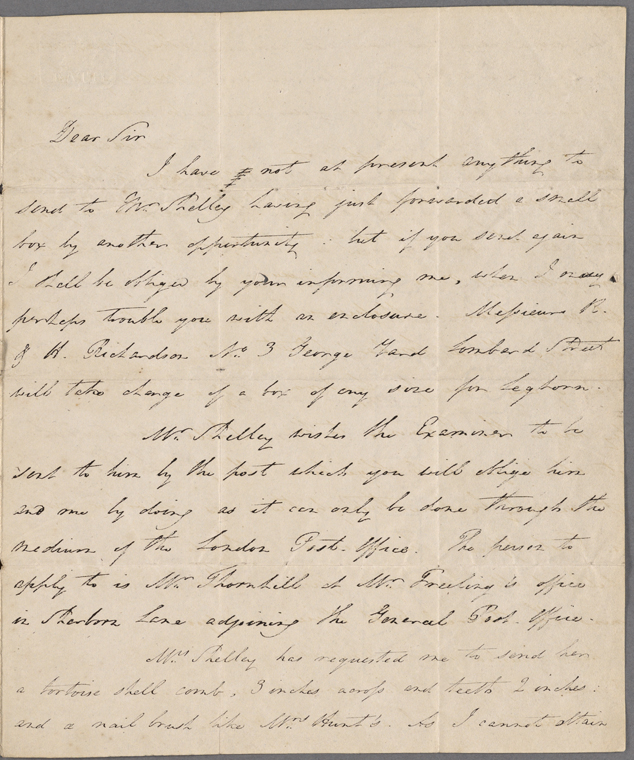 Dear Sir
I have not at present anything to
send to Mr. Shelley having just forwarded a small
box by another opportunity: but if you send again
I shall be obliged by your informing me, when I may
perhaps trouble you with an enclosure. Messieurs R.
& H. Richardson No. 3 George Yard Lombard Street
will take charge of a box of any size for Leghorn.
Mr. Shelley wishes the Examiner to be
sent to him by the post which you will oblige him
and me by doing as it can only be done through the
medium of the London Post-Office. The person to
apply to is Mr. Thornhill at Mr. Freeling's office
in Sherborn Lane adjoining the General Post-Office.
Mrs Shelley has requested me to send her
a tortoise shell comb, 3 inches across and teeth 2 inches:
and a nail brush like Mrs Hunt's. As I cannot attain